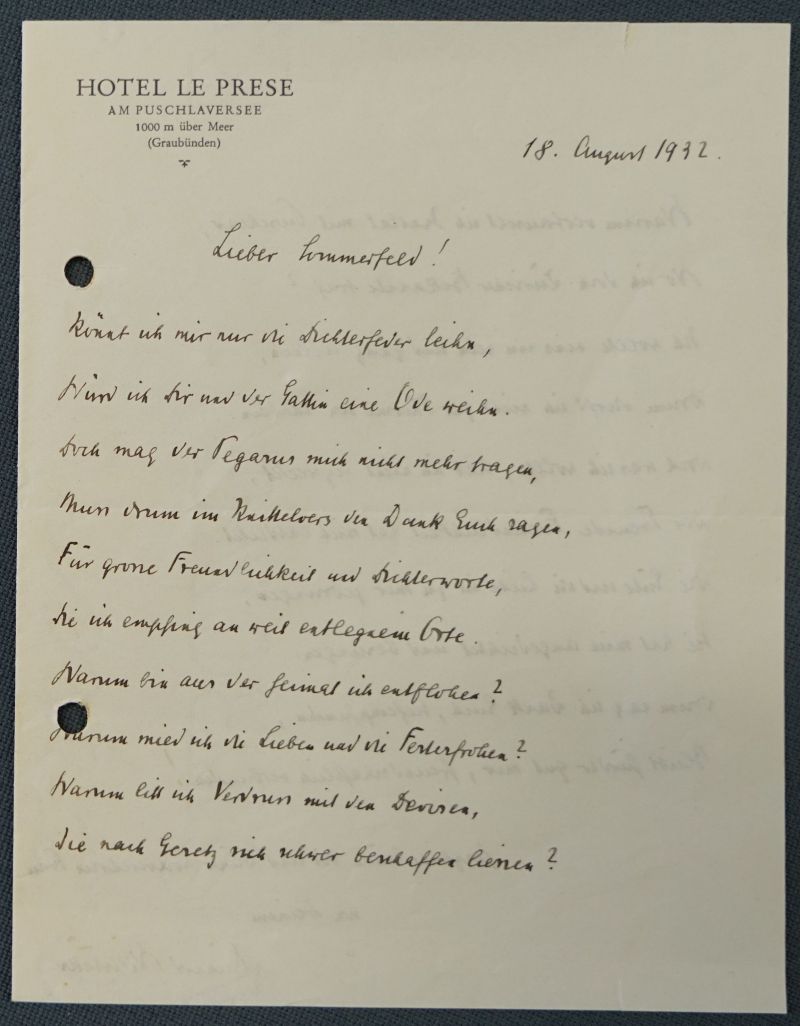 HOTEL LE PRESE
AM PUSCHLAVERSEE
1000 m über Meer
(Graubünden)
18. August 1932.
Lieber Sommerfeld!
Könnt ich mir nur die Dichterfeder leihn,
Würd ich Dir und der Gattin eine Ode weihn.
Doch mag der Pegasus mich nicht mehr tragen,
Muss drum im Knittelvers den Dank Euch sagen,
Für grosse Freundlichkeit und Dichterworte,
Die ich empfing an weit entlegnem Orte.
Warum bin aus der Heimat ich entflohen?
Warum mied ich die Lieben und die Festesfrohen?
Warum litt ich Verdruss mit den Devisen,
Die nach Gesetz sich schwer beschaffen liessen?